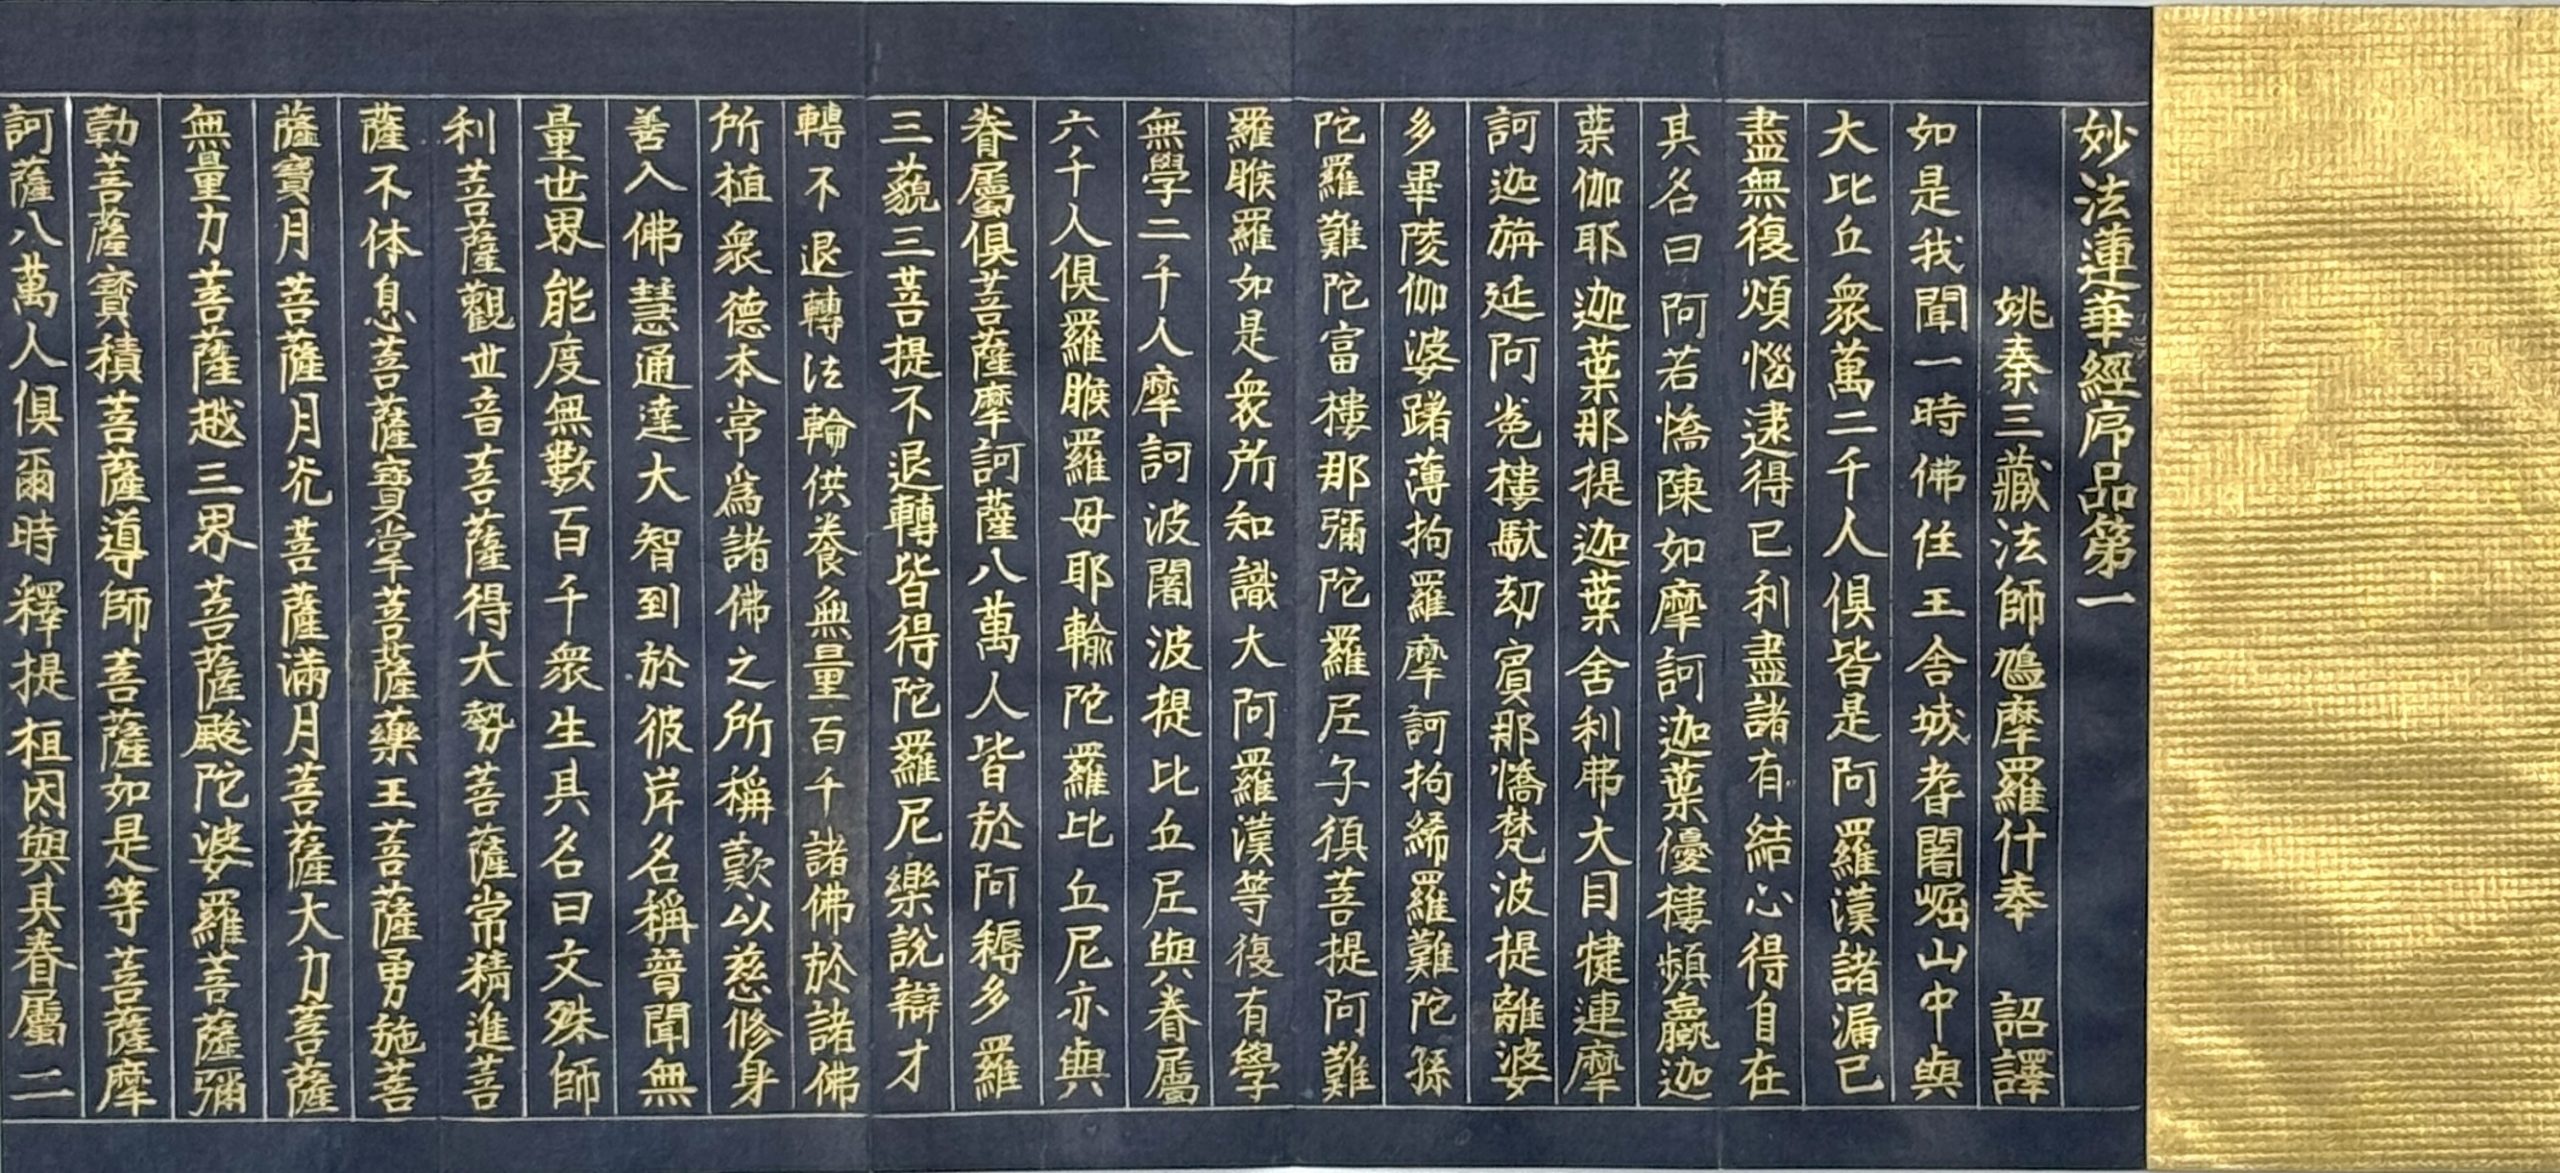 妙法蓮華經序品第一
姚秦三藏法師鳩摩羅什奉 詔譯
如是我聞一時佛住王舍城耆闍崛山中與
大比丘衆萬二千人俱皆是阿羅漢諸漏已
盡無復煩惱逮得已利盡諸有結心得自在
其名曰阿若憍陳如摩訶迦葉優樓頻蠃迦
葉伽耶迦葉那提迦葉舍利弗大目犍連摩
訶迦旃延阿㝹樓馱劫賓那憍梵波提離婆
多畢陵伽婆蹉薄拘羅摩訶拘絺羅難陀孫
陀羅難陀富樓那彌陀羅尼子須菩提阿難
羅睺羅如是衆所知識大阿羅漢等復有學
無學二千人摩訶波闍波提比丘尼與眷屬
六千人俱羅睺羅母耶輸陀羅比丘尼亦與
眷屬俱菩薩摩訶薩八萬人皆於阿耨多羅
三藐三菩提不退轉皆得陀羅尼樂說辯才
轉不退轉法輪供養無量百千諸佛於諸佛
所植衆德本常爲諸佛之所稱歎以慈修身
善入佛慧通達大智到於彼岸名稱普聞無
量世界能度無數百千衆生其名曰文殊師
利菩薩觀世音菩薩得大勢菩薩常精進菩
薩不休息菩薩寶掌菩薩藥王菩薩勇施菩
薩寶月菩薩月光菩薩滿月菩薩大力菩薩
無量力菩薩越三界菩薩颰陀婆羅菩薩彌
勒菩薩寶積菩薩導師菩薩如是等菩薩摩
訶薩八萬人俱爾時釋提桓因與其眷屬二